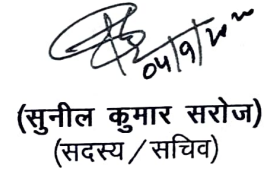 04/9/2020
(सुनील कुमार सरोज)
(सदस्य / सचिव)